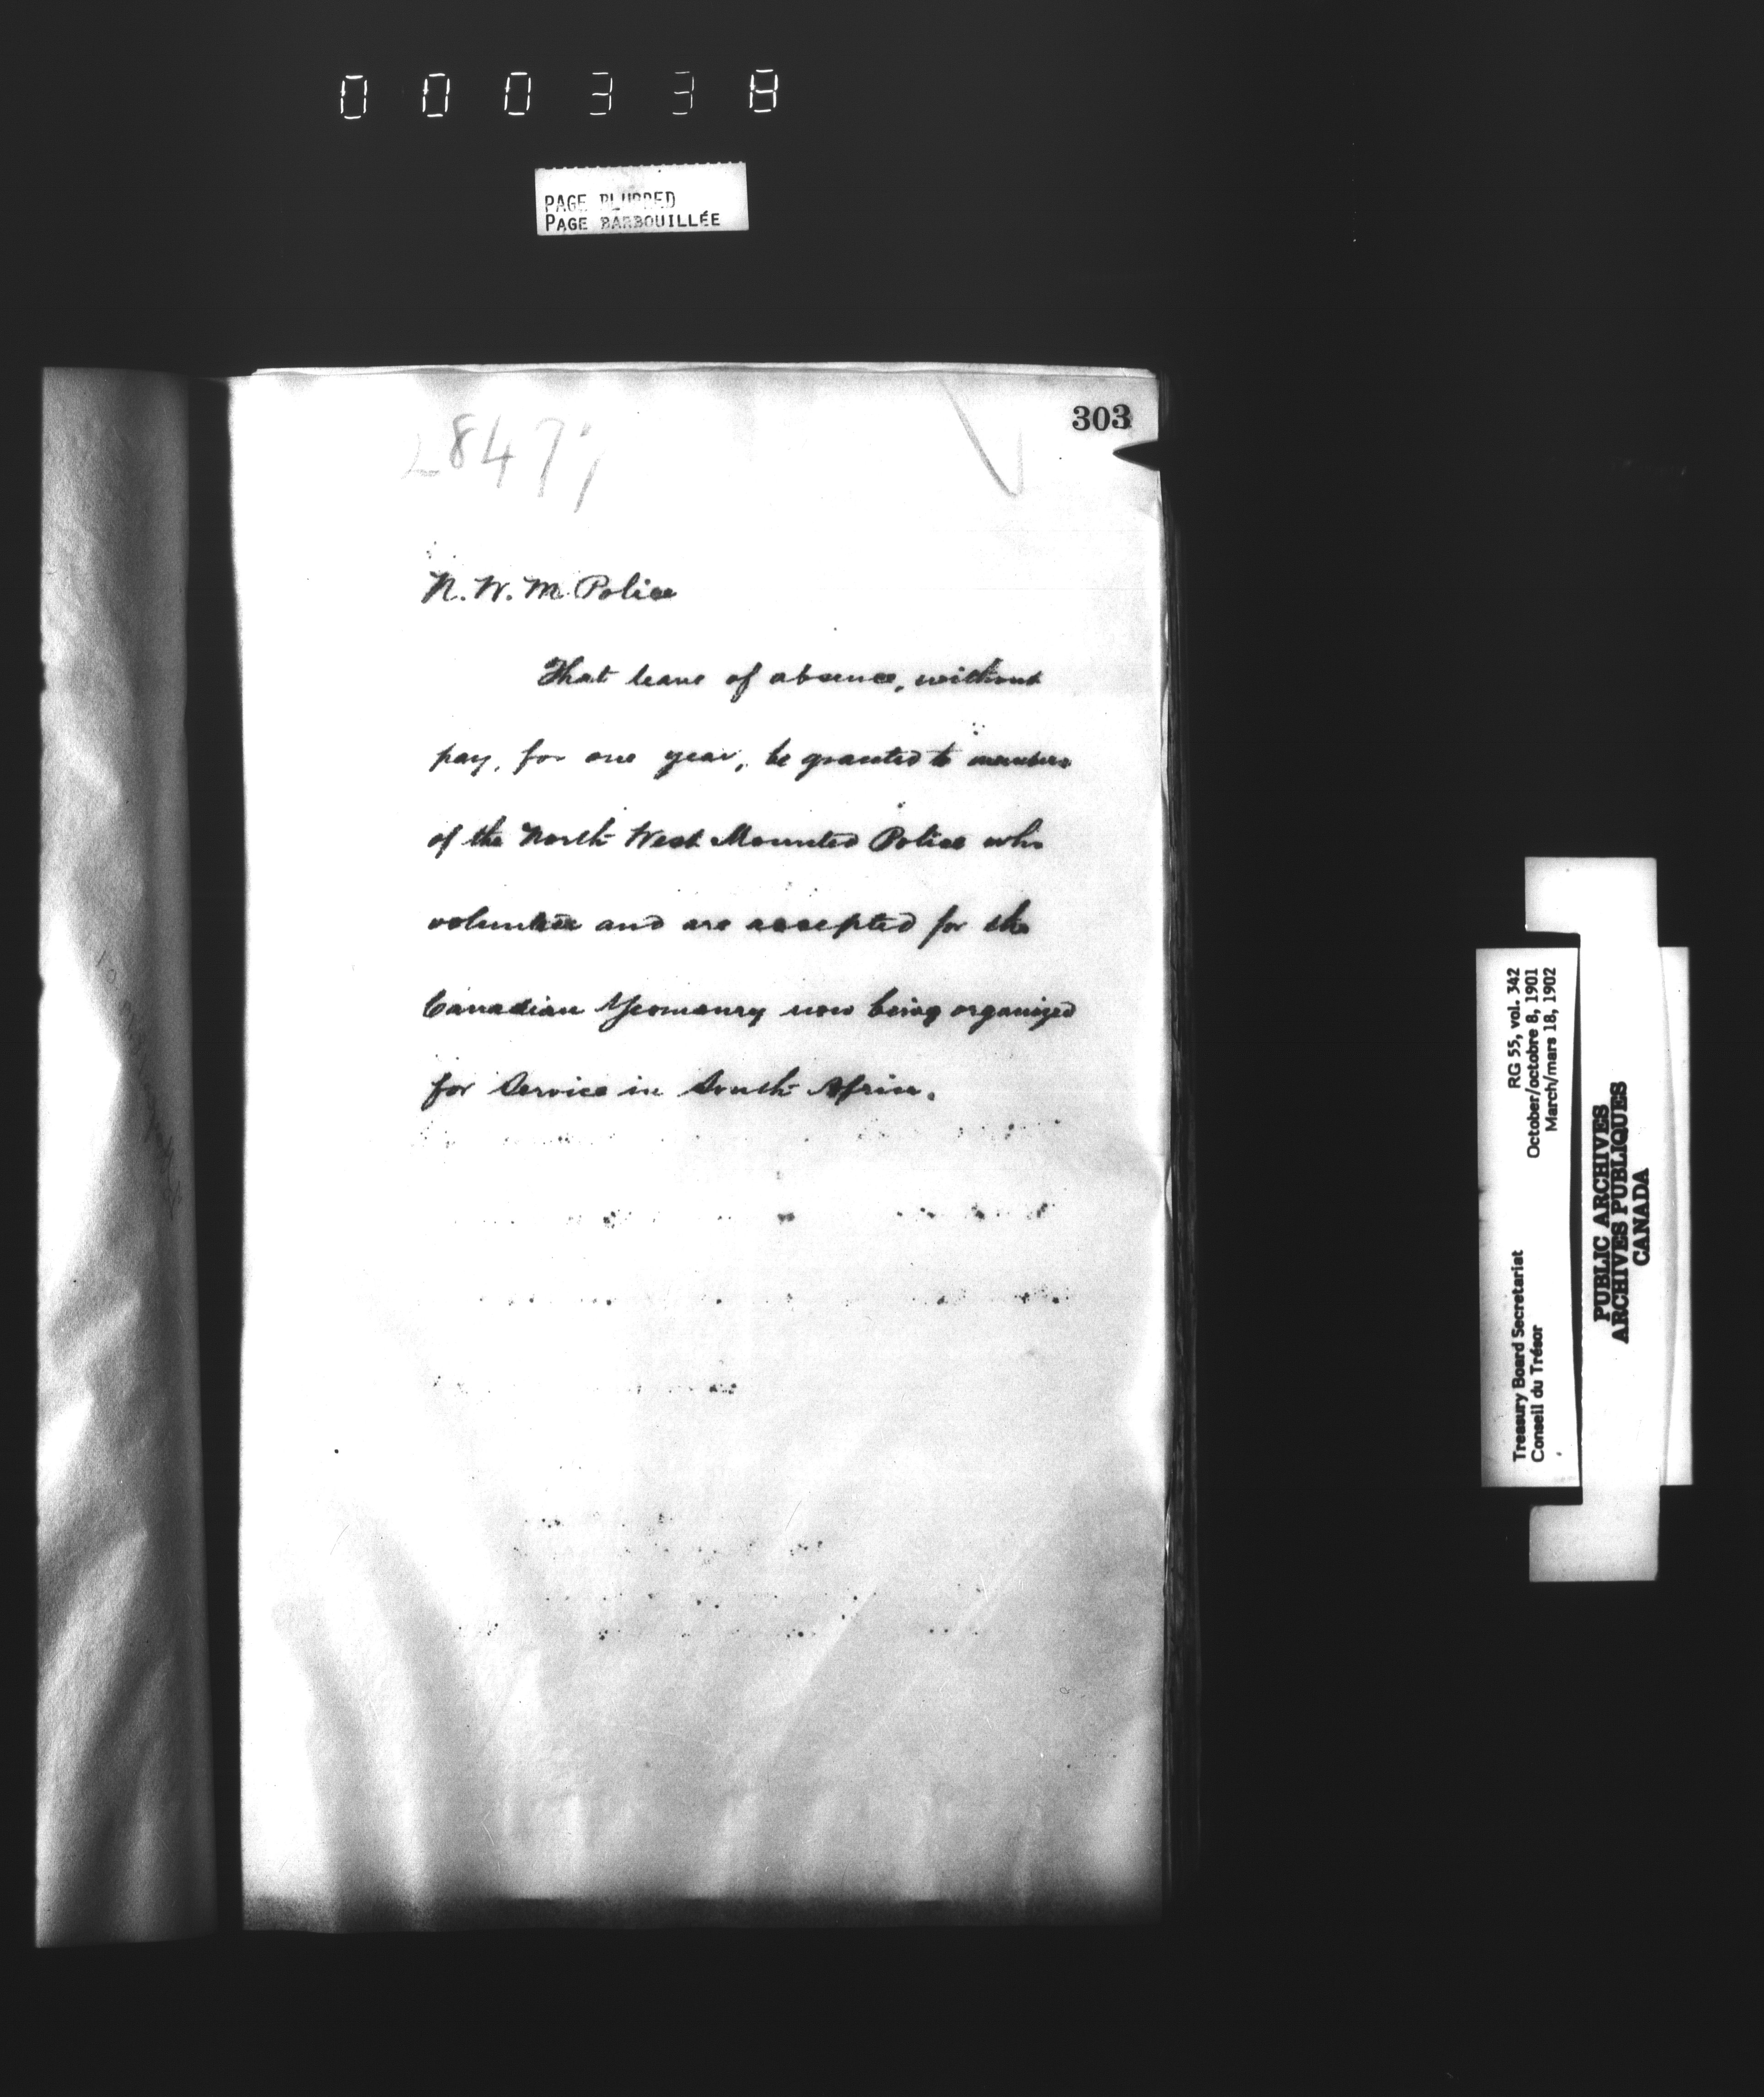 000338
PAGE BLURRED
PAGE BARBOUILLÉE
303
2847;
N. W. M. Police
That leave of absence, without
pay, for one year, be granted to members
of the North West Mounted Police who
volunteer and are accepted for the
Canadian Yeomanry now being organized
for Service in South Africa.
RG 55, vol. 342
October/octobre 8, 1901
March/mars 18, 1902
Treasury Board Secretariat
Conseil du Trésor
PUBLIC ARCHIVES
ARCHIVES PUBLIQUES
CANADA